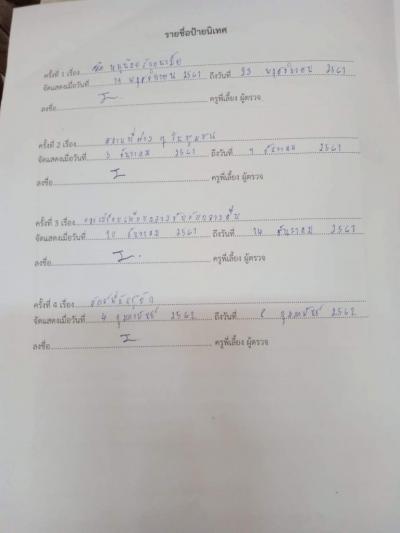 รายชื่อป้ายนิเทศ
ครั้งที่ 1 เรื่อง
จัดแสดงเมื่อวันที่ 19 พฤศจิกายน 2561 ถึงวันที่ 23 พฤศจิกายน 2561
ลงชื่อ ครูพี่เลี้ยง ผู้ตรวจ
ครั้งที่ 2 เรื่อง สถานที่ต่าง ๆ ในชุมชน
จัดแสดงเมื่อวันที่ 3 ธันวาคม 2561 ถึงวันที่ 7 ธันวาคม 2561
ลงชื่อ ครูพี่เลี้ยง ผู้ตรวจ
ครั้งที่ 3 เรื่อง
จัดแสดงเมื่อวันที่ 10 ธันวาคม 2561 ถึงวันที่ 14 ธันวาคม 2561
ลงชื่อ ครูพี่เลี้ยง ผู้ตรวจ
ครั้งที่ 4 เรื่อง
จัดแสดงเมื่อวันที่ 4 กุมภาพันธ์ 2562 ถึงวันที่ กุมภาพันธ์ 2562
ลงชื่อ ครูพี่เลี้ยง ผู้ตรวจ